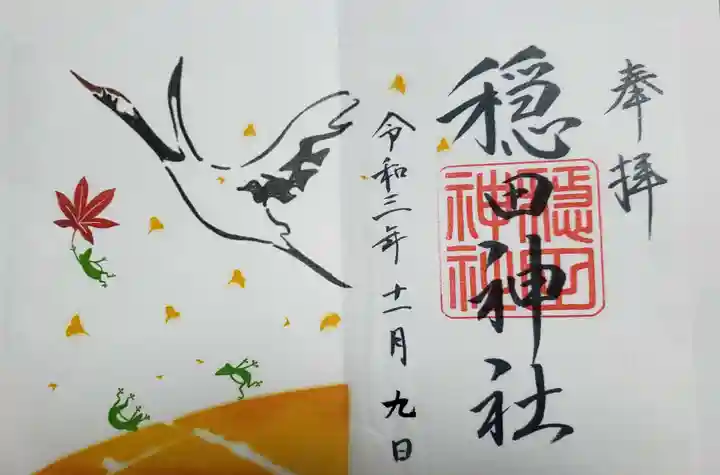 奉拝
穏田神社
穏田神社
令和三年十一月九日